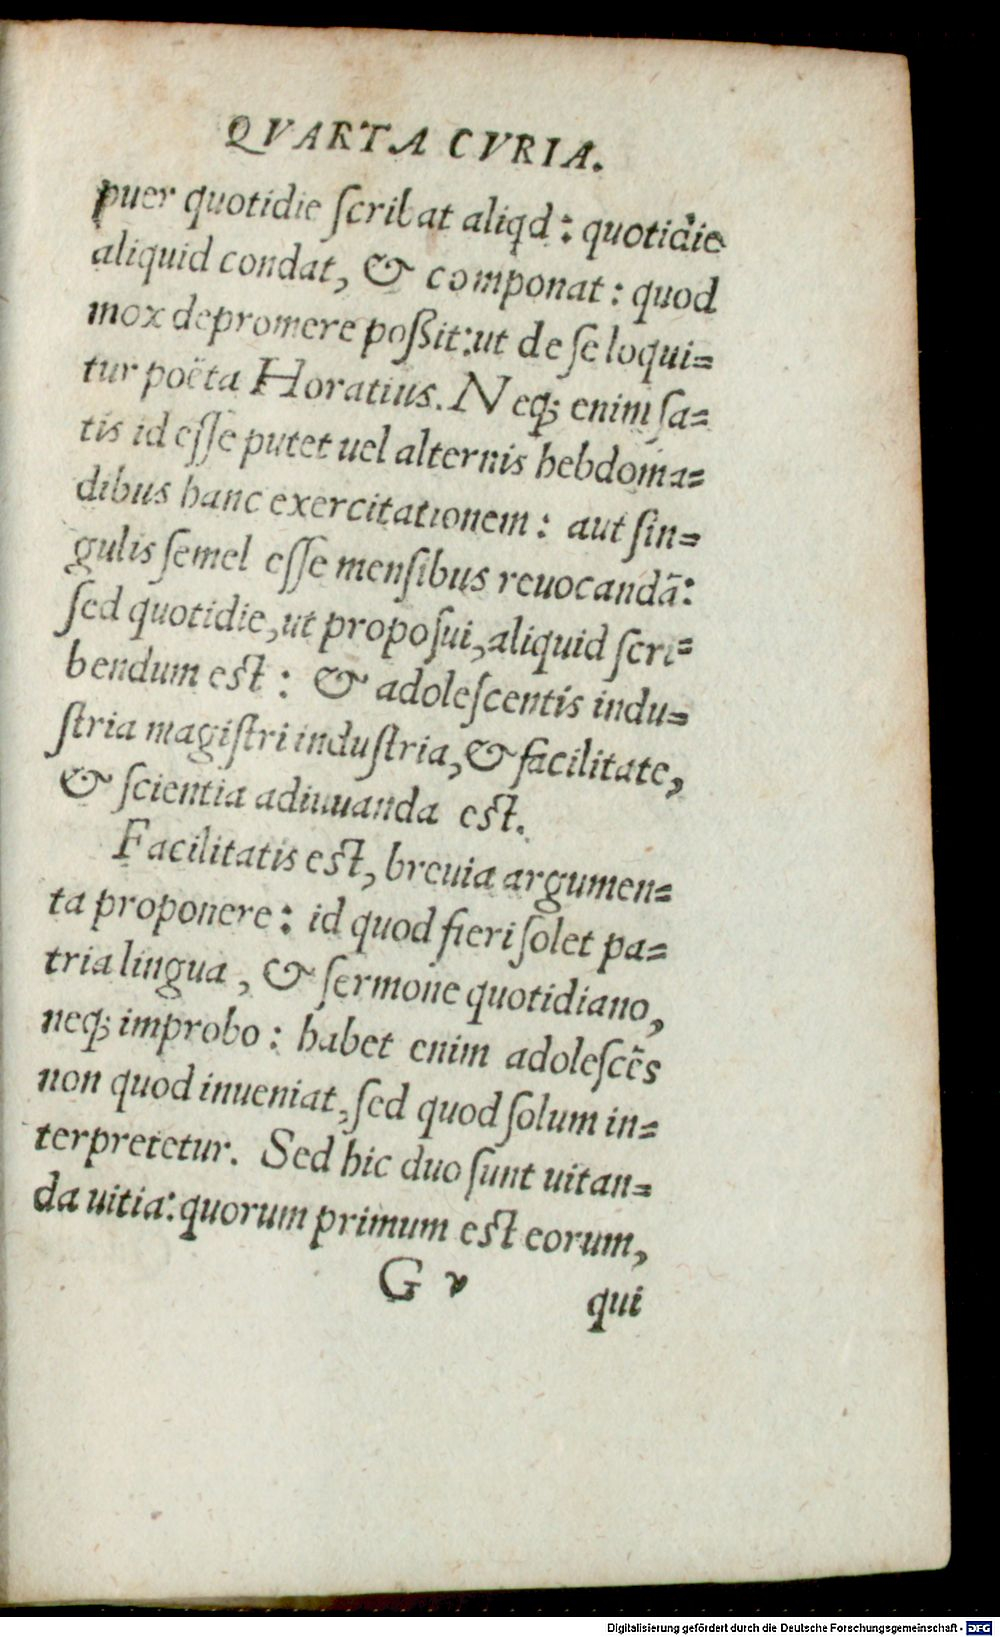 QVARTA CVRIA.
puer quotidie ſcribat aliqd: quotidie
aliquid condat, & componat: quod
mox depromere poßit: ut de ſe loqui=
tur poëta Horatius. Neq; enim ſa=
tis id eſſe putet uel alternis hebdoma=
dibus hanc exercitationem: aut ſin=
gulis ſemel eſſe menſibus reuocandã:
ſed quotidie, ut propoſui, aliquid ſcri=
bendum eſt: & adoleſcentis indu=
ſtria magiſtri induſtria, & facilitate,
& ſcientia adiuuanda eſt.
Facilitatis eſt, breuia argumen=
ta proponere: id quod fieri ſolet pa=
tria lingua, & ſermone quotidiano,
neq; improbo: habet enim adoleſcẽs
non quod inueniat, ſed quod ſolum in=
terpretetur. Sed hic duo ſunt uitan=
da uitia: quorum primum eſt eorum,
G v
qui
Digitalisierung gefördert durch die Deutsche Forschungsgemeinschaft - DFG